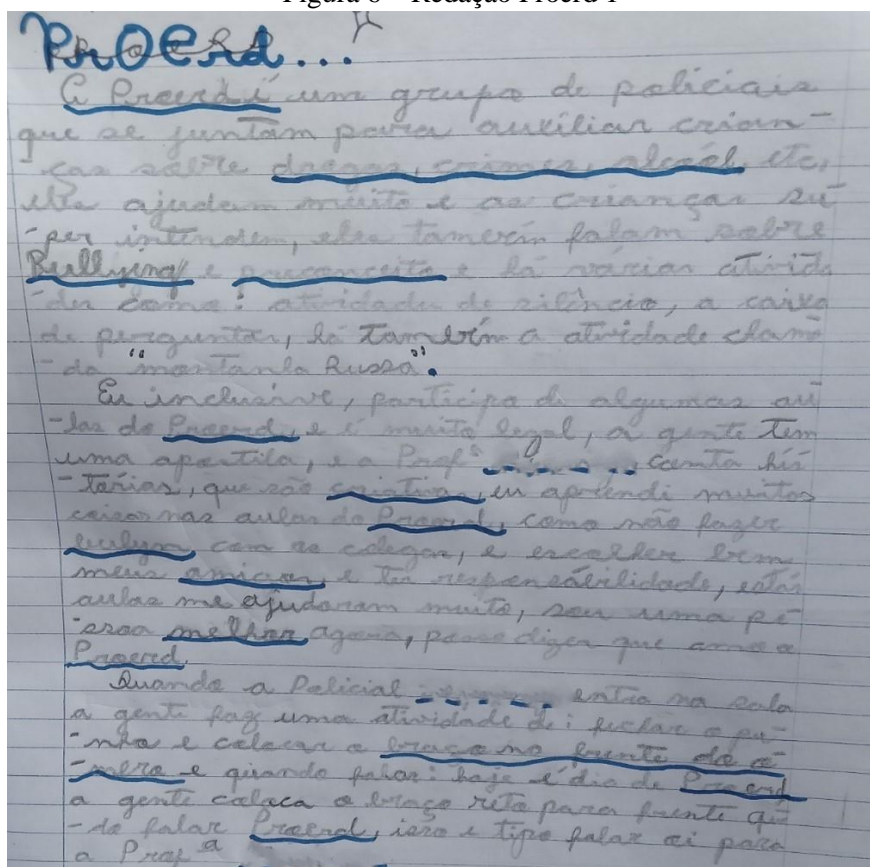 Figura 8 – Redação Proerd 1
PROERD...
A Proerd é um grupo de policiais
que se juntam para auxiliar crian-
-ças sobre drogas, crimes, alcoól, etc,
eles ajudam muito e as crianças su-
-per intendem, eles tamerém falam sobre
Bullying e preconceito e há várias ativida
-des como: atividade de silêncio, a caixa
de perguntas, há também a atividade chama
-da "montanha Russa".
Eu inclusive, participo de algumas au
-las do Proerd, e é muito legal, a gente tem
uma apostila, e a Profª conta his
-tórias, que são criativas, eu aprendi muitas
coisas nas aulas do Proerd, como não fazer
com os colegas, e escolher bem
meus amigos, e ter responsabilidade, estas
aulas me ajudaram muito, sou uma pe-
-ssoa melhor agora, posso dizer que amo o
Proerd.
Quando a Policial entra na sala
a gente faz uma atividade de: fechar o pu-
-nho e colocar o braço na frente do o
-mbro e quando falar: hoje é dia de Proerd
a gente coloca o braço reto para frente
-do falar Proerd, isso é tipo falar oi para
a Profª